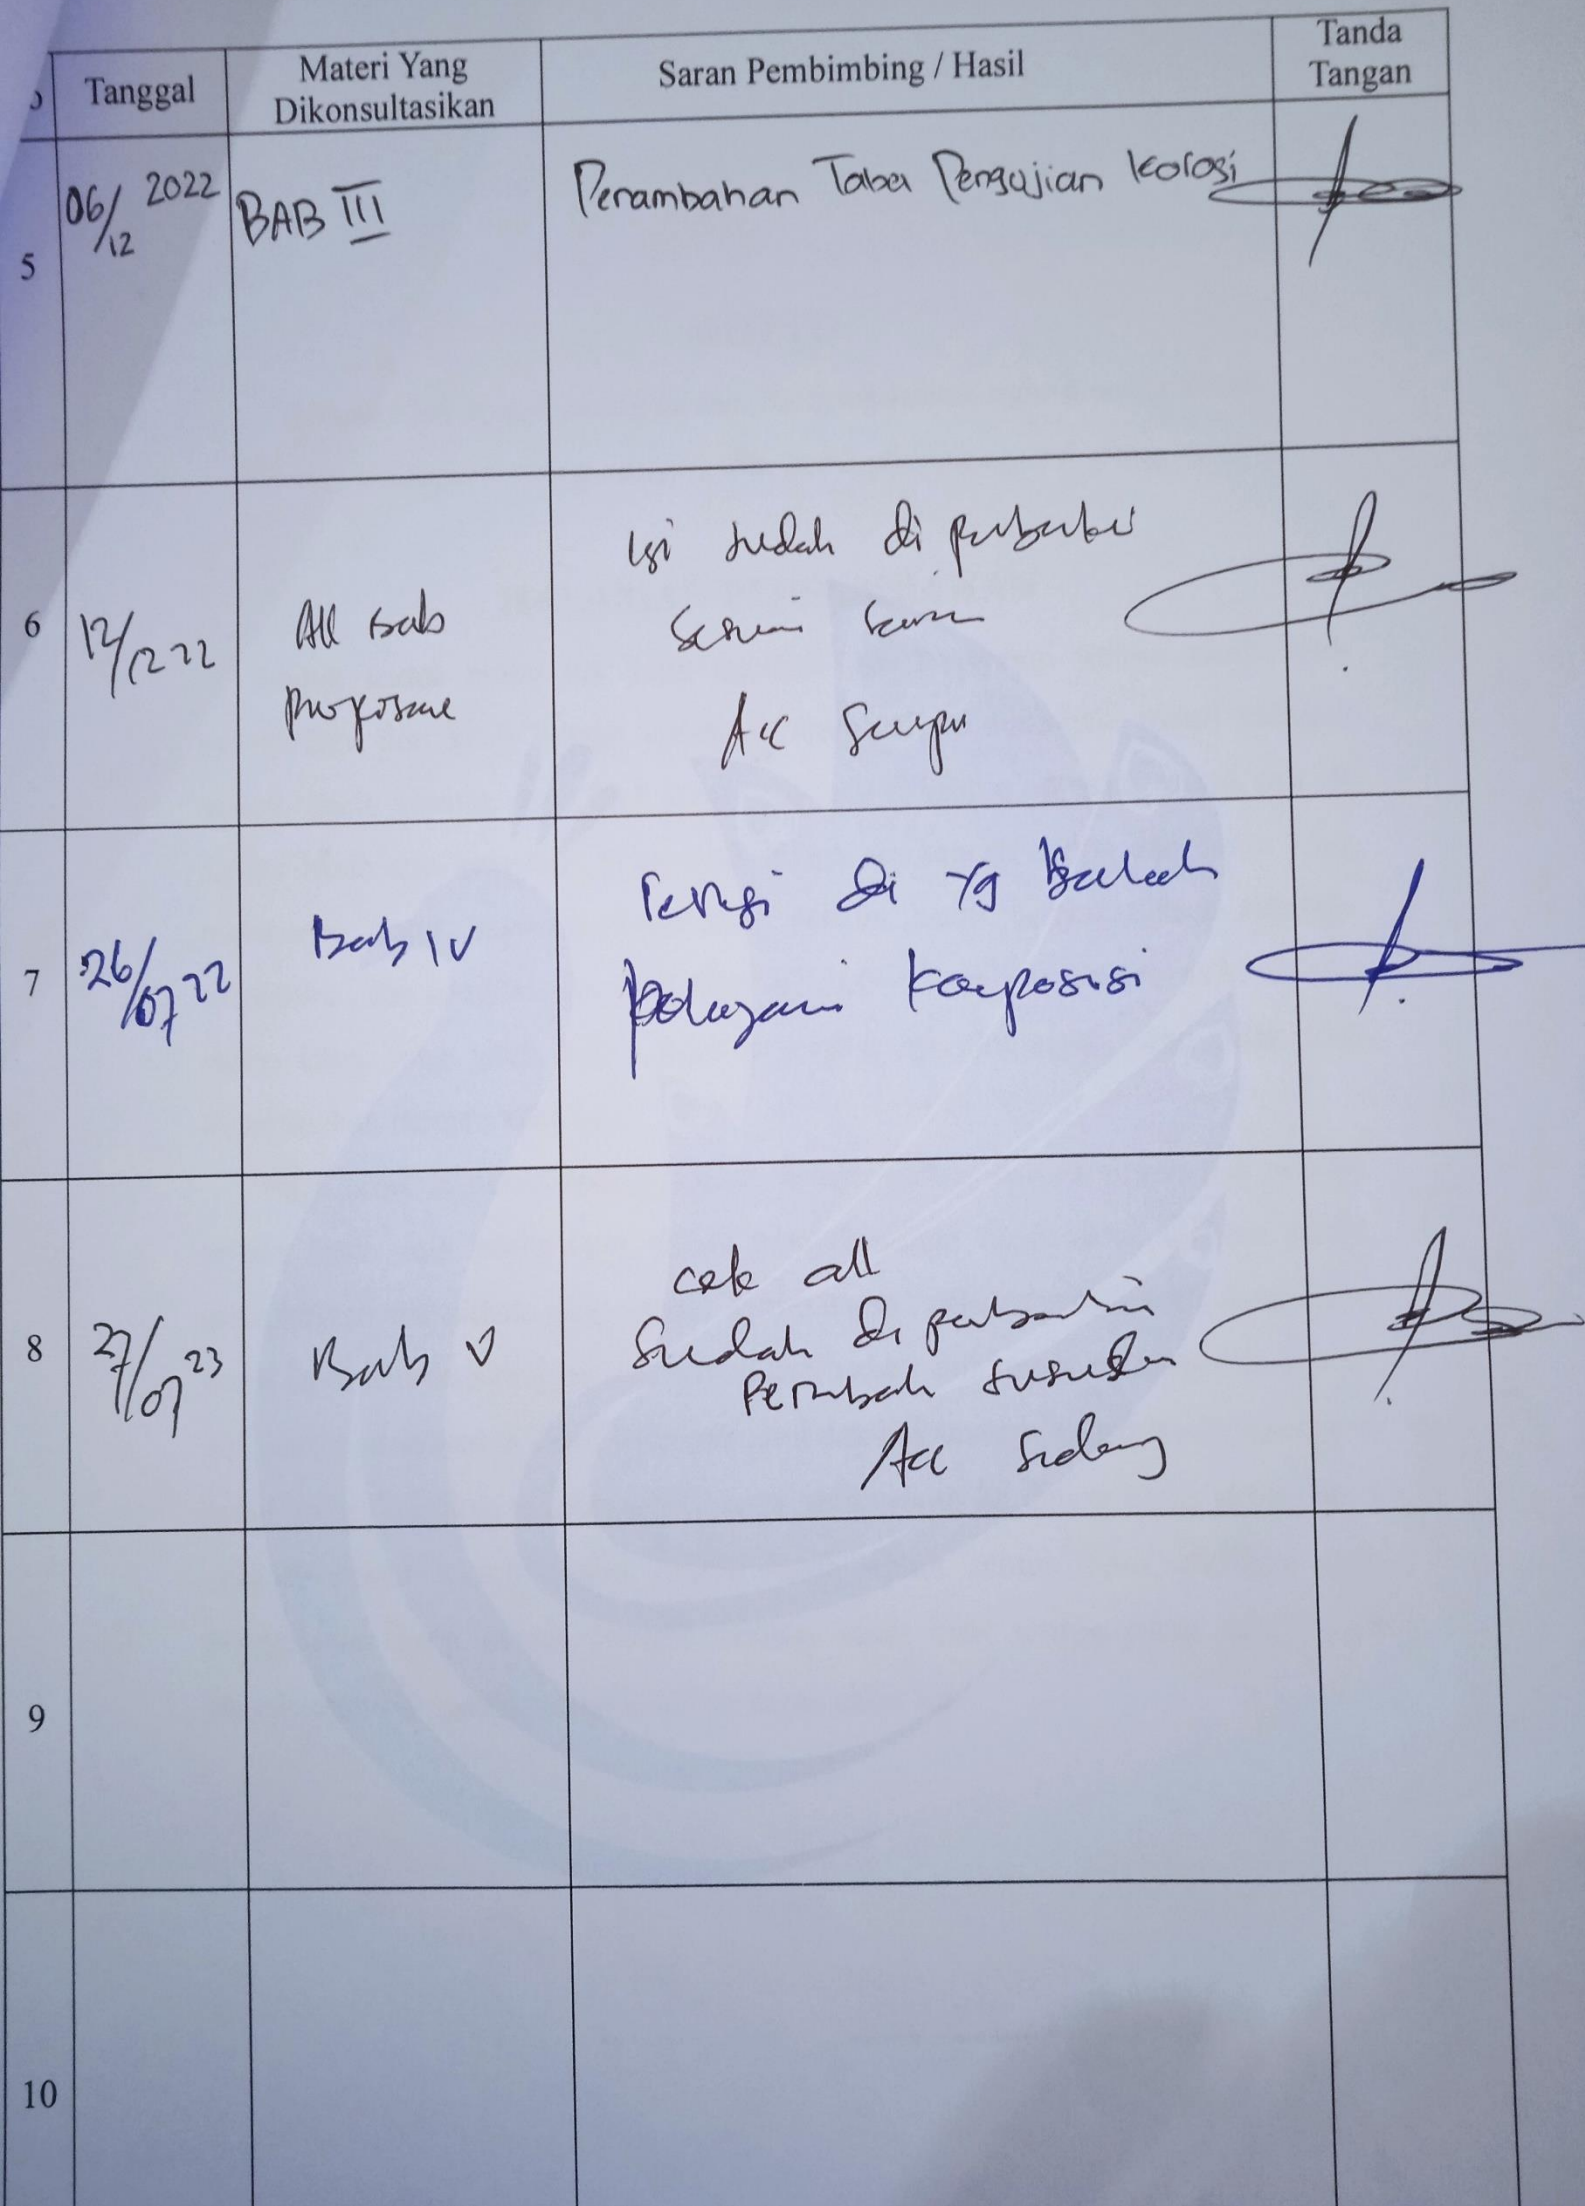 Tanggal
Materi Yang
Dikonsultasikan
Saran Pembimbing / Hasil
Tanda
Tangan
5
06/12 2022
BAB III
Penambahan Tabel Pengujian Korosi
6
12/12 22
All Bab
Isi sudah di perbaiki
sesuai saran
Acc
7
26/07 22
Bab IV
di yg
komposisi
8
27/07 23
Bab V
cek all
Sudah di perbaiki
Acc Sidang
9
10